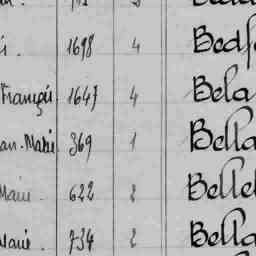 1698 4 Bedf
François 1647 4 Bela
an-Marie 369 1 Bella
Marie 622 2 Belle
Marie 734 2 Bella